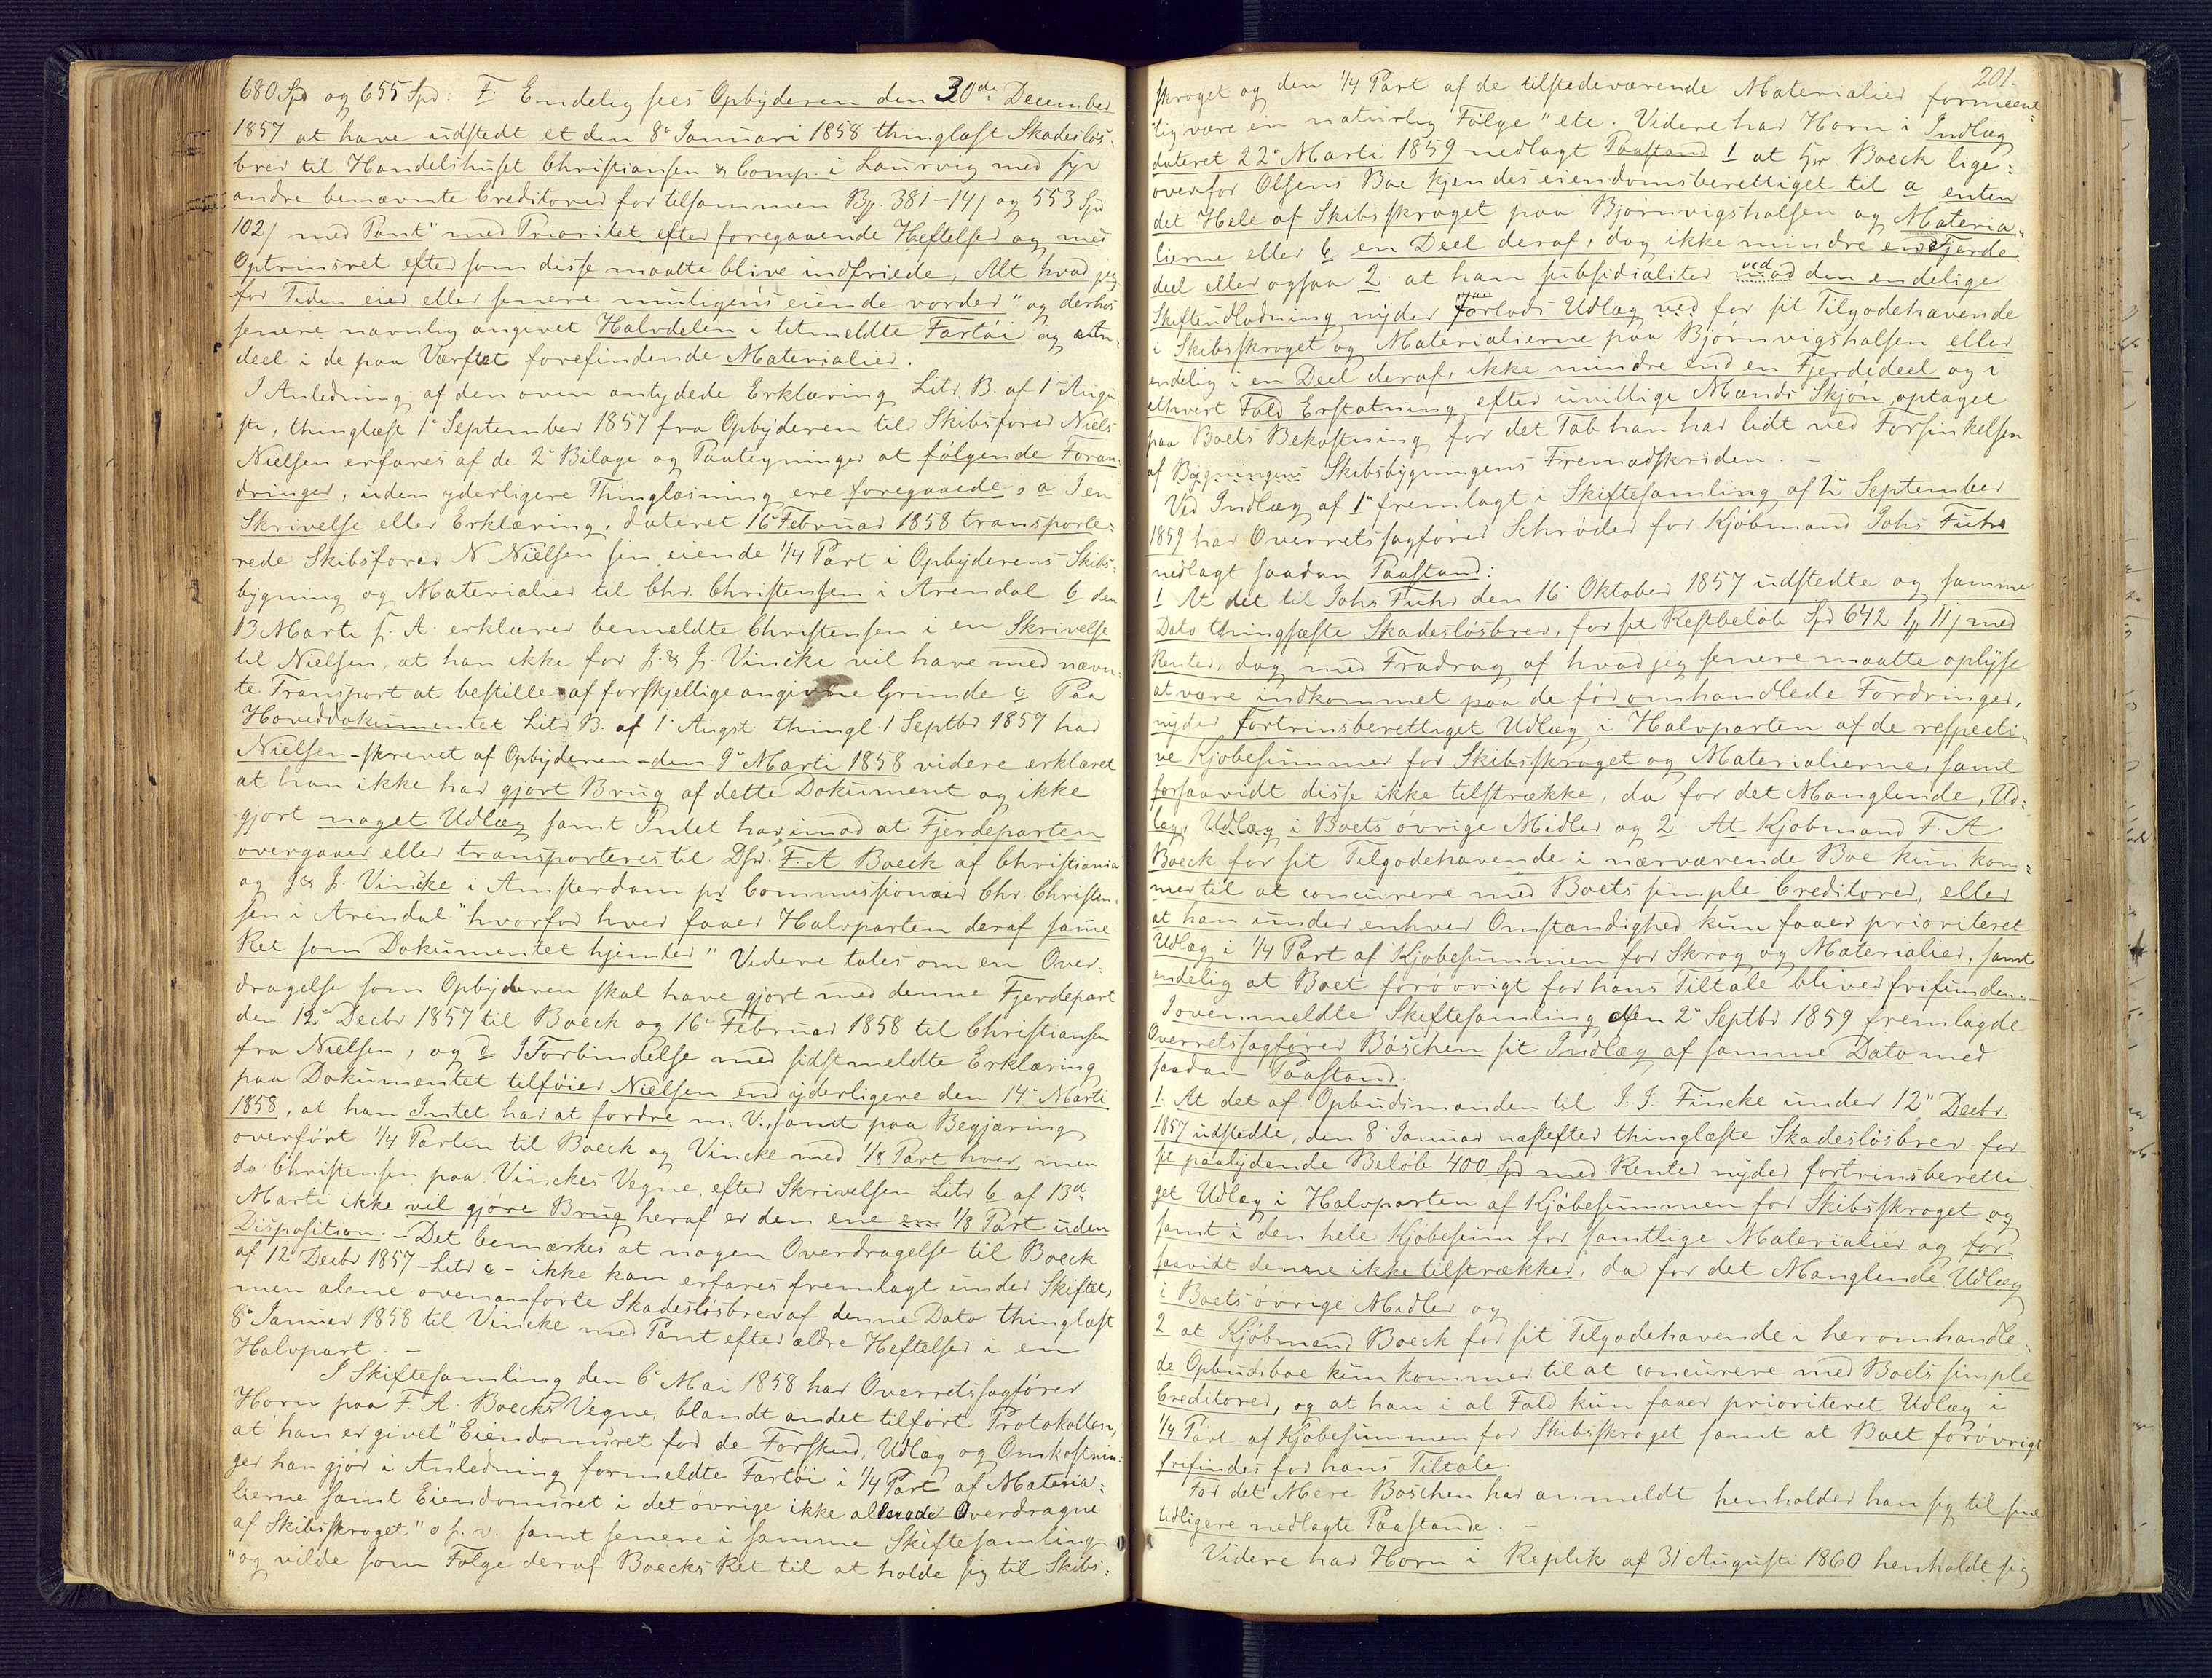 680 Spd og 655 Spd: F Endelig sees Opbyderen den 30de December
1857 at have udstedt et den 8de Januari 1858 thinglæst Skadesløs-
brev til Handelshuset Christiansen & Comp. i Laurvig med fyr
andre benævnte Creditorer for tilsammen Bg. 381-14ʃ og 553 Spd
102ʃ med Pant "med Prioritet efter foregaaende Heftelser og med
Optrinsret eftersom disse maatte blive indfriede, Alt hvad jeg
for Tiden eier eller senere muligens eiende vorder" og derhos
senere navnlig angivet Halvdelen i titmeldte Fartøi og An-
deel i de paa Værftet forefindende Materialier.
I Anledning af den oven antydede Erklæring Litr. B. af 1ste Augu
sti, thinglæst 1ste September 1857 fra Opbyderen til Skibsfører Niels
Nielsen erfares af de 2de Bilage og Paategninger at følgende Foran-
dringer, uden yderligere Thinglæsning ere foregaaede, a I en
Skrivelse eller Erklæring, dateret 16de Februar 1858 transporte-
rede Skibsfører N Nielsen sin eiende 1/4 Part i Opbyderens Skibs-
bygning og Materialier til Chr. Christensen i Arendal b den
13 Marti s. A. erklærer bemeldte Christensen i en Skrivelse
til Nielsen, at han ikke for J. & J. Vincke vil have med nævn-
te Transport at bestille af forskjellige angivne Grunde c Paa
Hoveddokumentet Litr B. af 1 Augst thingl. 1 Septbr 1857 har
Nielsen - skrevet af Opbyderen - den 9de Marti 1858 videre erklæret
at han ikke har gjort Brug af dette Dokument og ikke
gjort noget Udlæg samt Intet har imod at Fjerdeparten
overgaaer eller transporteres til Dhr. F. A Boeck af Christiania
og J & J. Vincke i Amsterdam pr. Commissionair Chr. Christen-
sen i Arendal "hvorfor hver faaer Halvparten deraf same
Ret som Dokumentet hjemler" Videre tales om en Over-
dragelse som Opbyderen skal have gjort med denne Fjerdepart
den 12te Decbr 1857 til Boeck og 16de Februar 1858 til Christiansen
fra Nielsen, og D I Forbindelse med sidstmeldte Erklæring
paa Dokumentet tilføier Nielsen end yderligere den 14de Marti
1858, at han Intet har at fordre m. V:, samt paa Begjæring
overført 1/4 Parten til Boeck og Vincke med 1/8 Part hver, men
da Christensen paa Vinckes Vegne efter Skrivelsen Litr b af 13de
Marti ikke vil gjøre Brug heraf er den ene en 1/8 Part uden
Disposition. - Det bemærkes at nogen Overdragelse til Boeck
af 12 Decbr 1857 - Litr c - ikke kan erfares fremlagt under Skiftet,
men alene ovenanførte Skadesløsbrev af denne Dato thinglæst
8de Januar 1858 til Vincke med Pant efter ældre Heftelser i en
Halvpart. -
I Skiftesamling den 6te Mai 1858 har Overretssagfører
Horn paa F. A. Boecks Vegne, blandt andet tilført Protokollen,
at han er givet "Eiendomsret for de Forskud, Udlæg og Omkostnin-
ger han gjør i Anledning formeldte Fartøi i 1/4 Part af Materia-
lierne samt Eiendomsret i det øvrige ikke allerede Overdragne
af Skibsskroget." o s. v. samt senere i samme Skiftesamling
"og vilde som Følge deraf Boecks Ret til at holde sig til Skibs-
201.
skroget og den 1/4 Part af de tilstedeværende Materialier formeent-
lig være en naturlig Følge" etc. Videre har Horn i Indlæg
dateret 22de Marti 1859 nedlagt Paastand 1 at Hr. Boeck lige-
overfor Olsens Boe kjendes eiendomsberettiget til a enten
det Hele af Skibsskroget paa Bjørnvigshalsen og Materia-
lierne eller b en Deel deraf, dog ikke mindre end Fjerde-
deel eller ogsaa 2. at han subsidialiter ved mod den endelige
Skifteudlodning nyder forlods Udlæg ved for sit Tilgodehavende
i Skibsskroget og Materialierne paa Bjørnvigshalsen eller
endelig i en Deel deraf, ikke mindre end en Fjerdedeel og i
ethvert Fald Erstatning efter uvillige Mænds Skjøn, optaget
paa Boets Bekostning for det Tab han har lidt ved Forsinkelsen
af Bygningens Skibsbygningens Fremadskriden. -
Ved Indlæg af 1ste fremlagt i Skiftesamling af 2de September
1859 har Overretssagfører Schrøder for Kjøbmand Johs Fuhr
nedlagt saadan Paastand:
1 At det til Johs Fuhr den 16 Oktober 1857 udstedte og samme
Dato thinglæste Skadesløsbrev, for sit Restbeløb Spd 642 1ʃ 11ʃ med
Renter, dog med Fradrag af hvad jeg senere maatte oplyse
at være indkommet paa de før omhandlede Fordringer,
nyder fortrinsberettiget Udlæg i Halvparten af de respecti-
ve Kjøbesummer for Skibsskroget og Materialierne, samt
forsaavidt disse ikke tilstrække, da for det Manglende, Ud-
læg, Udlæg i Boets øvrige Midler og 2. At Kjøbmand F. A
Boeck for sit Tilgodehavende i nærværende Boe kun kom-
mer til at concurere med Boets simple Creditorer, eller
at han under enhver Omstændighed kun faaer prioriteret
Udlæg i 1/4 Part af Kjøbesummen for Skrog og Materialier, samt
endelig at Boet forøvrigt for hans Tiltale bliver frifunden. -
I ovenmeldte Skiftesamling den 2de Septbr 1859 fremlagde
Overretssagfører Bøschen sit Indlæg af samme Dato med
saadan Paastand.
1. At det af Opbudsmanden til I. I. Fincke under 12te Decbr.
1857 udstedte, den 8de Januar næstefter thinglæste Skadesløsbrev for
sit paalydende Beløb 400 Spd med Renter nyder fortrinsberetti-
get Udlæg i Halvparten af Kjøbesummen for Skibsskroget og
samt i den hele Kjøbesum for samtlige Materialier og for-
saavidt denne ikke tilstrækker, da for det Manglende Udlæg
i Boets øvrige Midler og
2 at Kjøbmand Boeck for sit Tilgodehavende i her omhandle-
de Opbudsboe kun kommer til at concurere med Boets simple
Creditorer, og at han i al Fald kun faaer prioriteret Udlæg i
1/4 Part af Kjøbesummen for Skibsskroget samt at Boet forøvrigt
frifindes for hans Tiltale.
For det Mere Boschen har anmeldt henholder han sig til sine
tidligere nedlagte Paastande. -
Videre har Horn i Replik af 31 Augusti 1860 henholdt sig